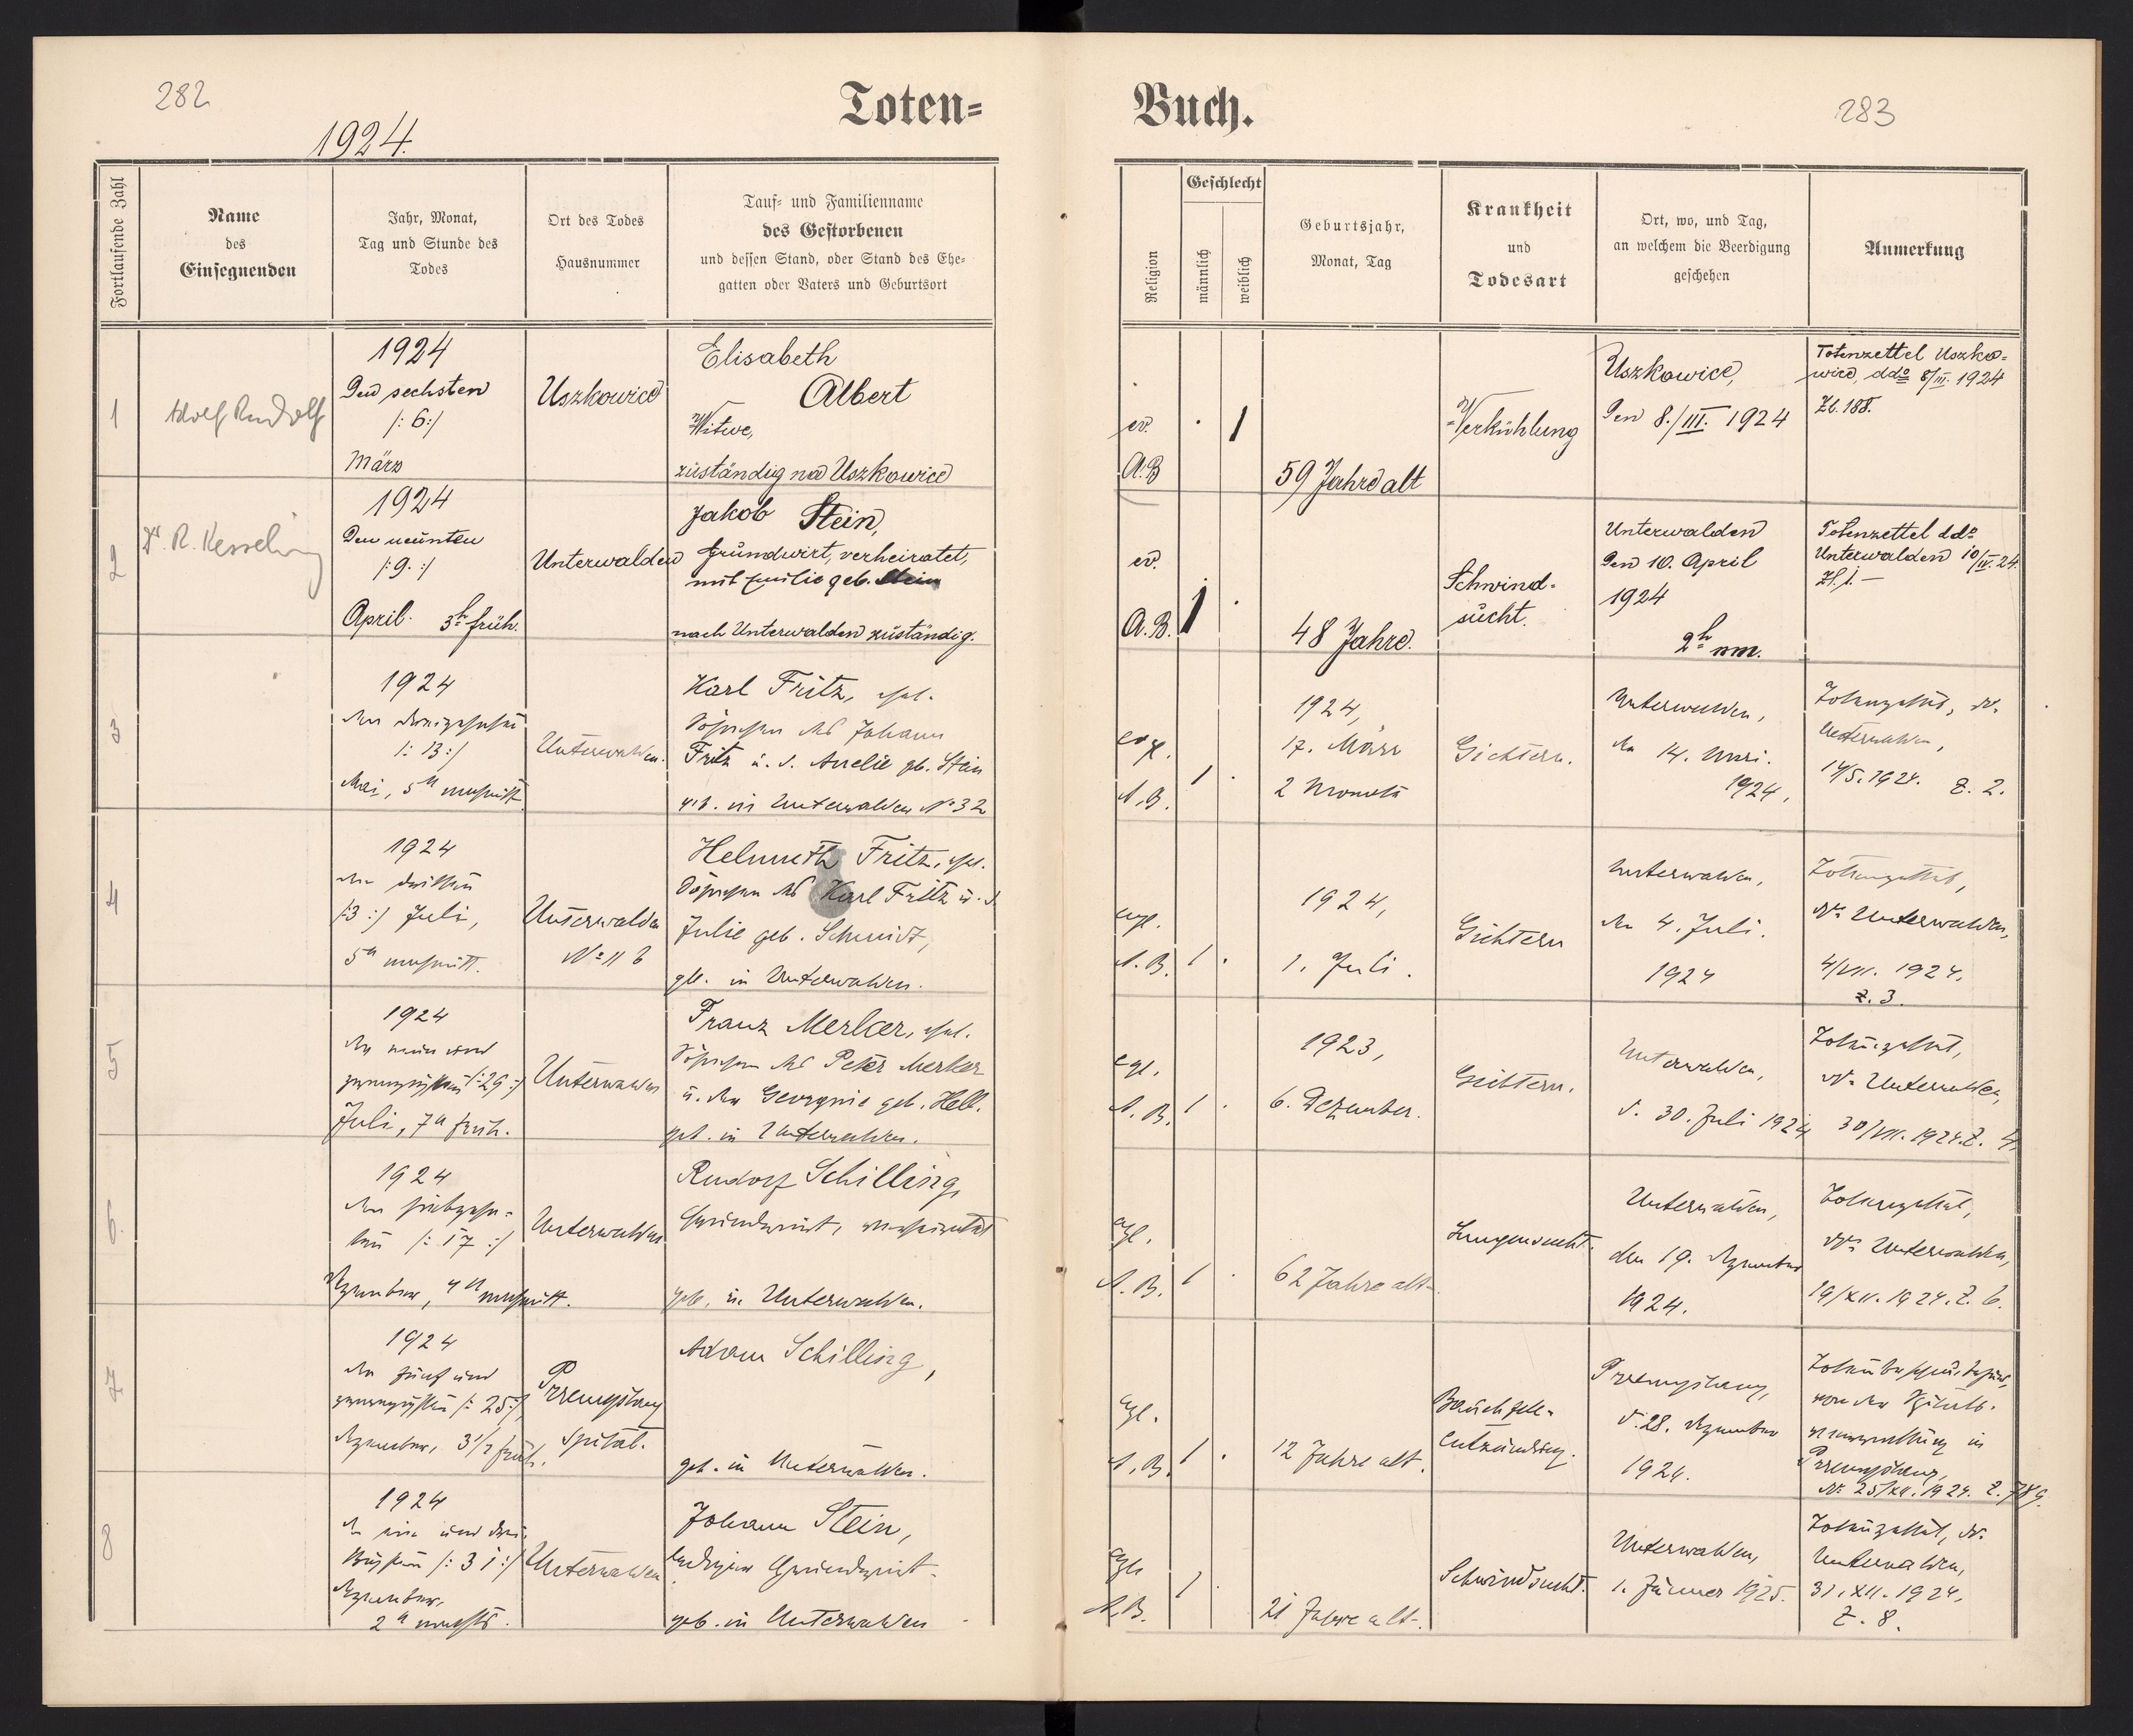 282
Toten-
Buch.
283
1924.
Fortlaufende Zahl
Name
des
Einsegnenden
Jahr, Monat,
Tag und Stunde des
Todes
Ort des Todes
Hausnummer
Tauf- und Familienname
des Gestorbenen
und dessen Stand, oder Stand des Ehe-
gatten oder Vaters und Geburtsort
Religion
Geschlecht
männlich
weiblich
Geburtsjahr,
Monat, Tag
Krankheit
und
Todesart
Ort, wo, und Tag,
an welchem die Beerdigung
geschehen
Anmerkung
1
Adolf Rudolf
1924
Den sechsten
/: 6:/
März
Uszkowice
Elisabeth
Albert
Witwe,
zuständig na Uszkowice
ev.
A.B
1
59 Jahre alt
Verkühlung
Uszkowice,
Den 8./III. 1924
Totenzettel Uszko-
wice, ddo 8/III. 1924
Zl. 188.
2
Dr. R. Kesselring
1924
Den neunten
/:9.:/
April. 3h früh.
Unterwalden
Jakob Stein,
Grundwirt, verheiratet,
mit Emilie geb. Stein
nach Unterwalden zuständig.
ev.
A.B.
1
48 Jahre.
Schwind-
sucht.
Unterwalden
Den 10. April
1924
2h nm.
Totenzettel ddo
Unterwalden 10/IV. 24.
Zl. 1. —
3
1924
den dreizehnten
/: 13:/
Mai, 5h nachmitt.
Unterwalden.
Karl Fritz, ehel.
Söhnchen des Johann
Fritz u. d. Amelie gb. Stein
geb. in Unterwalden No 32
evgl.
A.B.
1
1924,
17. März
2 Monate
Gichtern.
Unterwalden,
den 14. Mai.
1924,
Totenzettel, ddo
Unterwalden,
14/5. 1924. Z. 2.
4
1924
den dritten
/:3:/ Juli,
5h nachmitt.
Unterwalden
No 116
Helmuth Fritz, ehel.
Söhnchen des Karl Fritz u. d.
Julie geb. Schmidt,
geb. in Unterwalden.
evgl.
A.B.
1
1924,
1. Juli.
Gichtern
Unterwalden,
den 4. Juli.
1924
Totenzettel,
ddo Unterwalden,
4/VII. 1924.
Z. 3.
5
1924
den neun und
zwanzigsten /:29:/
Juli, 7h früh.
Unterwalden
Franz Merker, ehel.
Söhnchen des Peter Merker
u. der Georgine geb. Hell.
geb. in Unterwalden.
evgl.
A.B.
1
1923,
6. Dezember.
Gichtern.
Unterwalden,
d. 30. Juli 1924
Totenzettel,
ddo Unterwalden,
30/VII. 1924. Z. 4.
6.
1924
den siebzehn-
ten /: 17 :/
Dezember, 4h nachmitt.
Unterwalden
Rudolf Schilling,
Grundwirt, verheiratet
geb. in Unterwalden.
evgl.
A.B.
1
62 Jahre alt.
Lungensucht.
Unterwalden,
den 19. Dezember
1924.
Totenzettel,
ddo Unterwalden,
19/XII. 1924. Z. 6.
7
1924
den fünf und
zwanzigsten /: 25:/
Dezember, 3 1/2 früh.
Przemyślany
Spital.
Adam Schilling,
geb. in Unterwalden.
evgl.
A.B.
1
12 Jahre alt.
Bauchfell-
entzündung.
Przemyślany,
d. 28. Dezember
1924.
von der
in
Przemyślany,
ddo 25/XII. 1924. Z. 789.
8
1924
den ein und drei-
ßigsten /: 31 :/
Dezember,
2h nachts.
Unterwalden
Johann Stein,
lediger Grundwirt.
geb. in Unterwalden
evgl.
A.B.
1
21 Jahre alt.
Schwindsucht.
Unterwalden,
1. Jänner 1925.
Totenzettel, ddo
Unterwalden,
31. XII. 1924.
Z. 8.